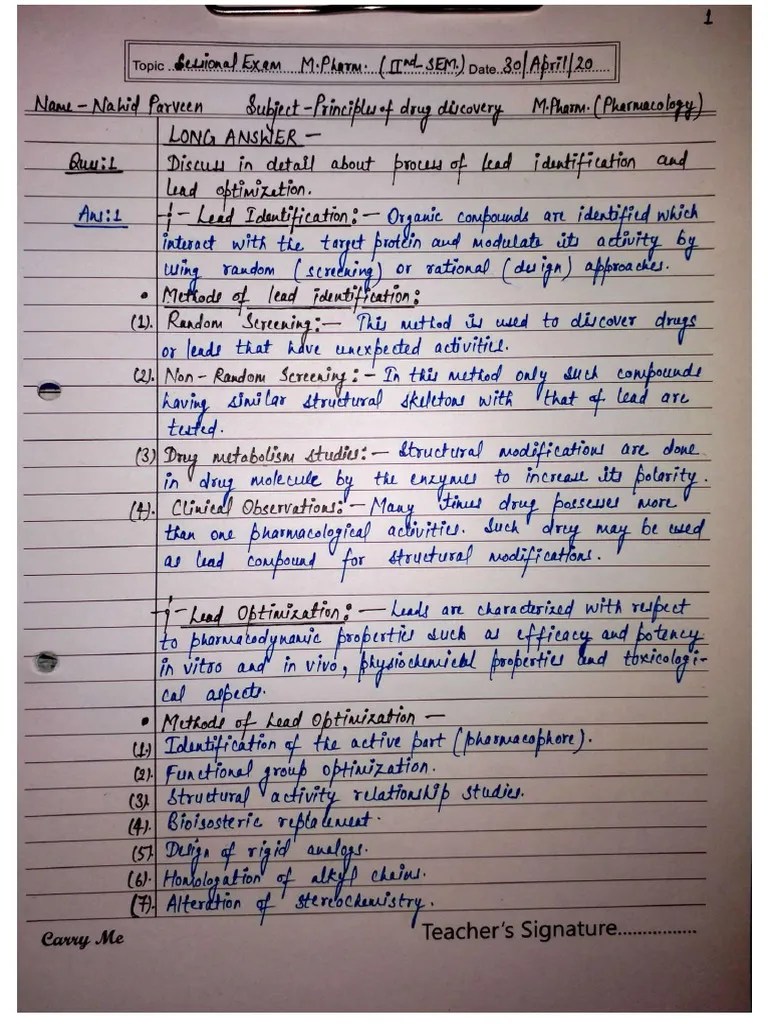 1
Topic Sessional Exam M.Pharm. (IInd SEM.) Date 30/April/20
Name - Nahid Parveen Subject - Principles of drug discovery M.Pharm. (Pharmacology)
LONG ANSWER -
Ques:1 Discuss in detail about process of lead identification and
lead optimization.
Ans:1 Lead Identification:- Organic compounds are identified which
interact with the target protein and modulate its activity by
using random (screening) or rational (design) approaches.
• Methods of lead identification:
(1). Random Screening:- This method is used to discover drugs
or leads that have unexpected activities.
(2). Non-Random Screening:- In this method only such compounds
having similar structural skeletons with that of lead are
tested.
(3) Drug metabolism studies:- Structural modifications are done
in drug molecule by the enzymes to increase its polarity.
(4). Clinical Observations:- Many times drug possesses more
than one pharmacological activities. Such drug may be used
as lead compound for structural modifications.
Lead Optimization:- Leads are characterized with respect
to pharmacodynamic properties such as efficacy and potency
in vitro and in vivo, physiochemical properties and toxicologi-
cal aspects.
• Methods of Lead Optimization -
(1.) Identification of the active part (pharmacophore).
(2). Functional group optimization.
(3). Structural activity relationship studies.
(4). Bioisosteric replacement.
(5). Design of rigid analogs.
(6). Homologation of alkyl chains.
(7). Alteration of stereochemistry.
Carry Me Teacher's Signature................